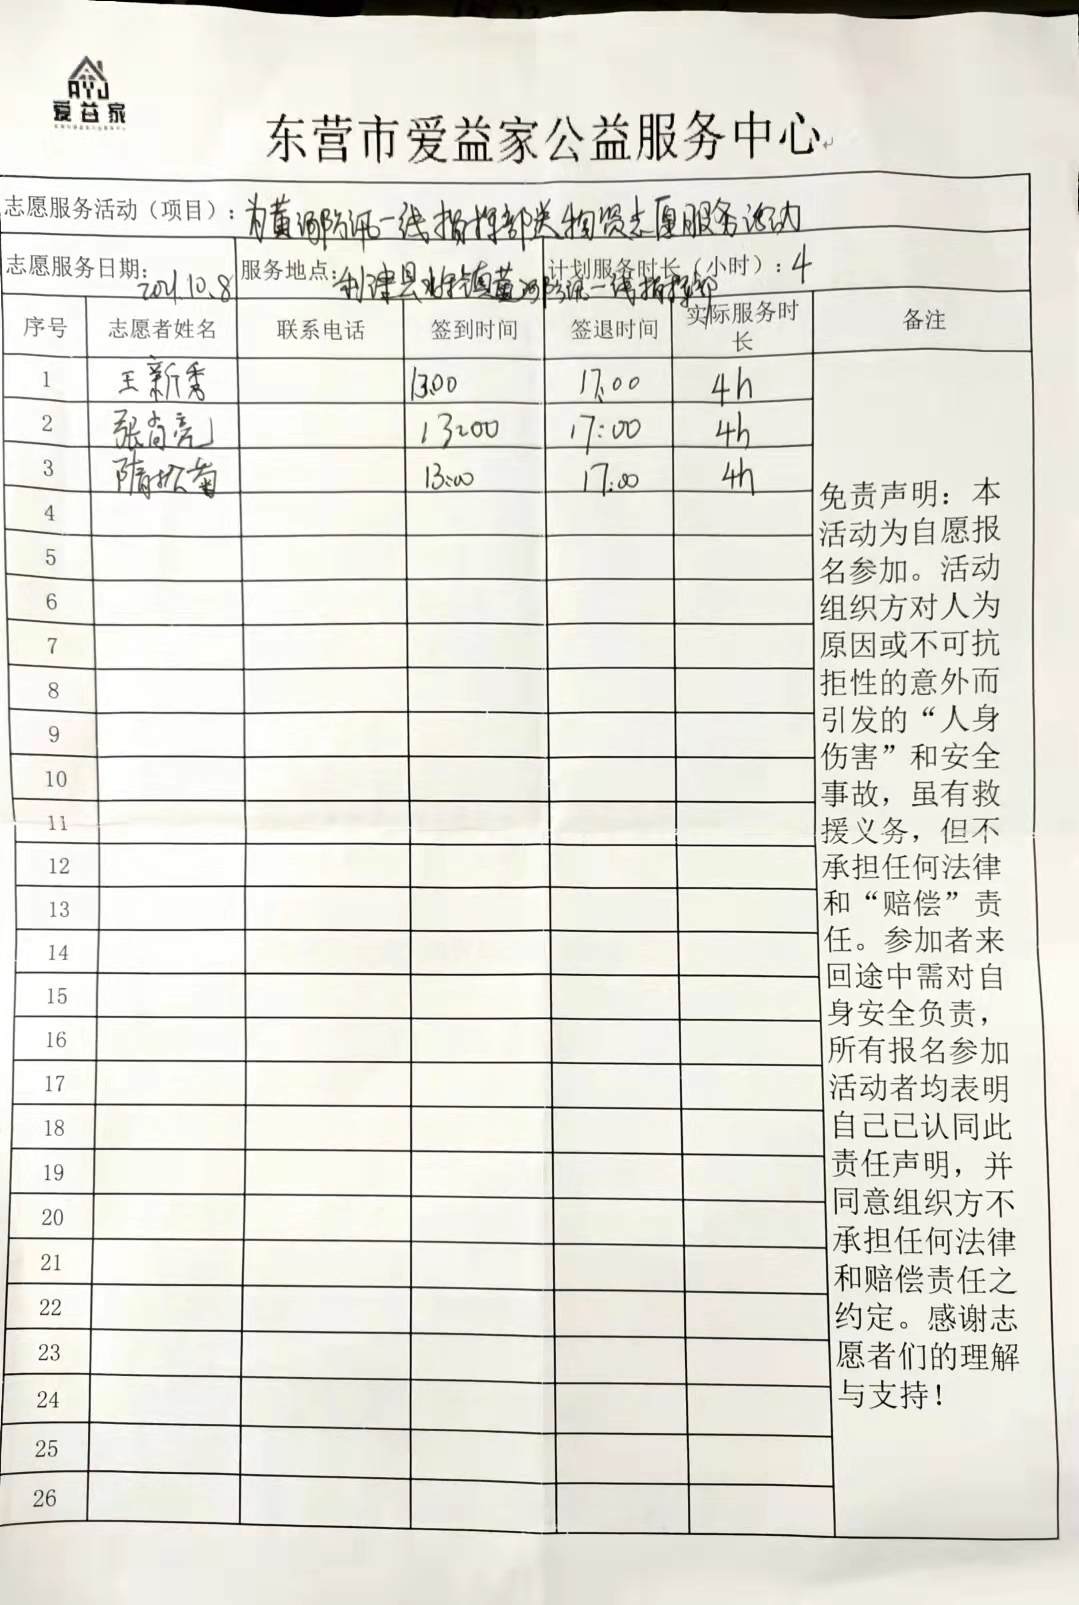 AYJ
爱益家
东营市爱益家公益服务中心
志愿服务活动（项目）：为黄河防汛一线指挥部送物资志愿服务活动
志愿服务日期：2021.10.8 服务地点：利津县 镇黄河防汛一线指挥部 计划服务时长（小时）：4
序号 志愿者姓名 联系电话 签到时间 签退时间 实际服务时长 备注
1 王新秀 13:00 17:00 4h
2 张肖亮 13:00 17:00 4h
3 隋 菊 13:00 17:00 4h
4
5
6
7
8
9
10
11
12
13
14
15
16
17
18
19
20
21
22
23
24
25
26
免责声明：本
活动为自愿报
名参加。活动
组织方对人为
原因或不可抗
拒性的意外而
引发的“人身
伤害”和安全
事故，虽有救
援义务，但不
承担任何法律
和“赔偿”责
任。参加者来
回途中需对自
身安全负责，
所有报名参加
活动者均表明
自己已认同此
责任声明，并
同意组织方不
承担任何法律
和赔偿责任之
约定。感谢志
愿者们的理解
与支持！